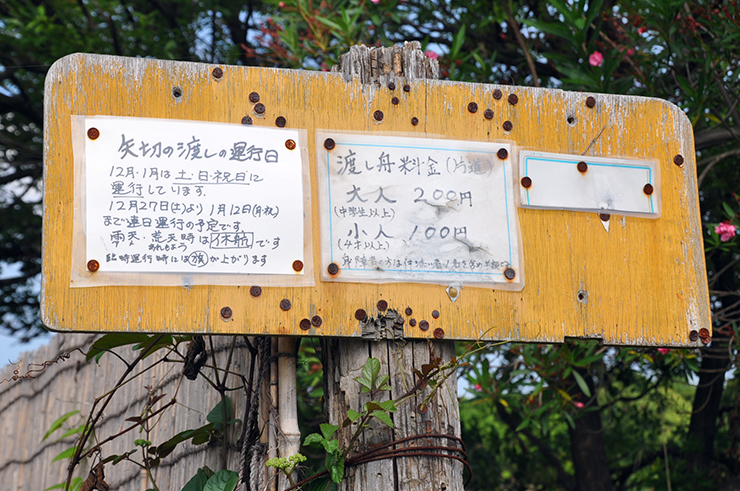 矢切の渡しの運行日
12月・1月は土・日・祝日に
運行しています.
12月27日(土)より 1月12日(月・祝)
まで連日運行の予定です
雨天・荒天時は休航です
あれもよう
臨時運行時には旗が上がります
渡し舟料金(片道)
大人 200円
(中学生以上)
小人 100円
(4才以上)